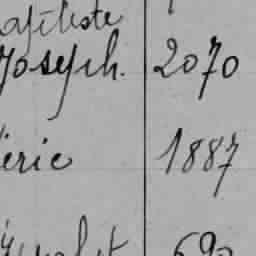 aptiste
Joseph. 2070
érie 1887
690